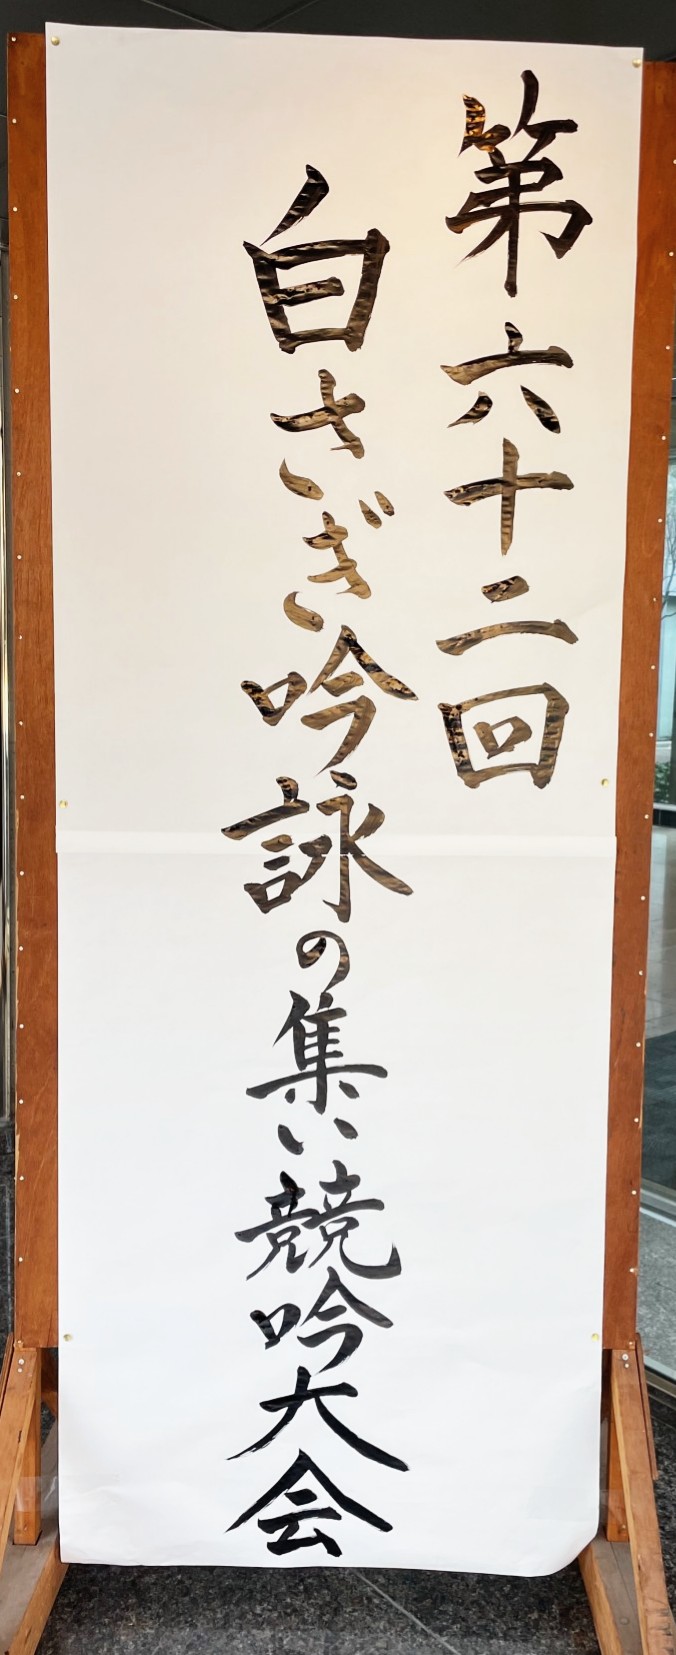 第六十二回
白さぎ吟詠の集い競吟大会